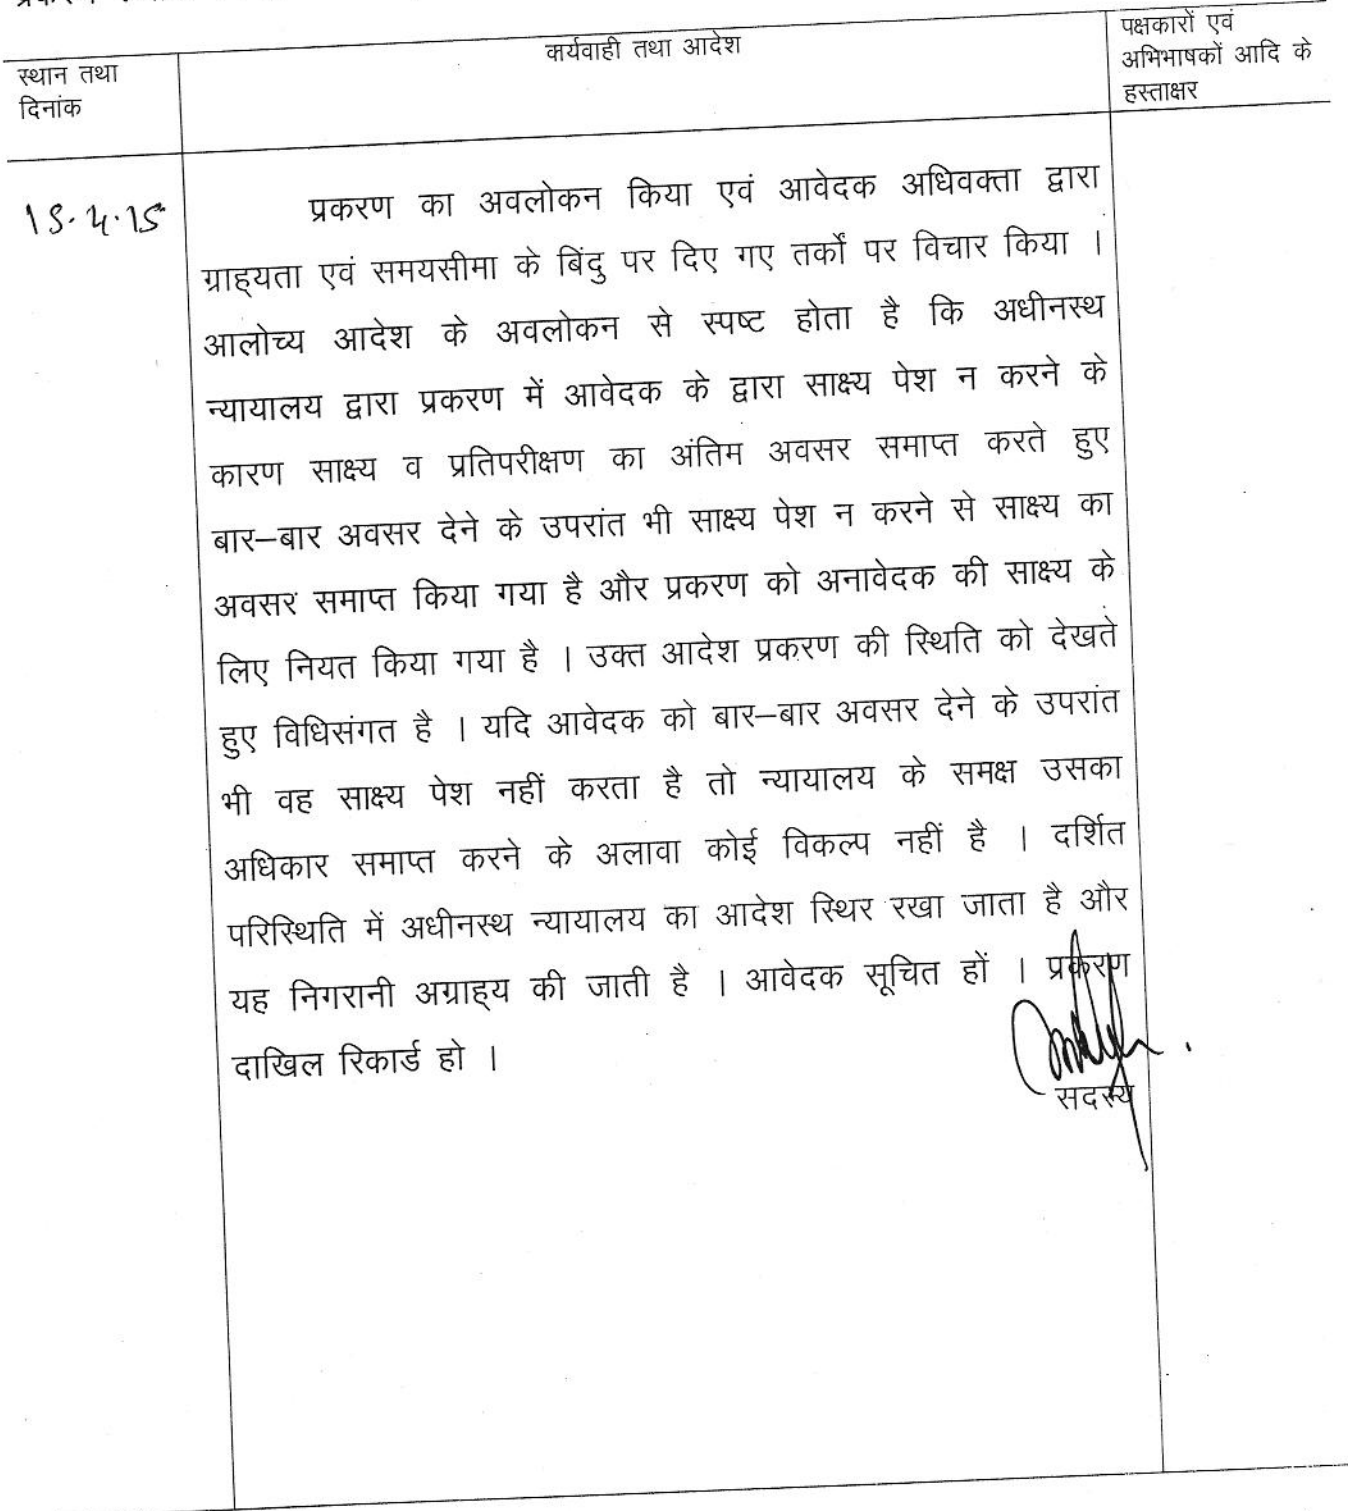 पक्षकारों एवं
अभिभाषकों आदि के
हस्ताक्षर
कार्यवाही तथा आदेश
स्थान तथा
दिनांक
प्रकरण का अवलोकन किया एवं आवेदक अधिवक्ता द्वारा
ग्राह्यता एवं समयसीमा के बिंदु पर दिए गए तर्कों पर विचार किया ।
आलोच्य आदेश के अवलोकन से स्पष्ट होता है कि अधीनस्थ
न्यायालय द्वारा प्रकरण में आवेदक के द्वारा साक्ष्य पेश न करने के
कारण साक्ष्य व प्रतिपरीक्षण का अंतिम अवसर समाप्त करते हुए
बार–बार अवसर देने के उपरांत भी साक्ष्य पेश न करने से साक्ष्य का
अवसर समाप्त किया गया है और प्रकरण को अनावेदक की साक्ष्य के
लिए नियत किया गया है । उक्त आदेश प्रकरण की स्थिति को देखते
हुए विधिसंगत है । यदि आवेदक को बार–बार अवसर देने के उपरांत
भी वह साक्ष्य पेश नहीं करता है तो न्यायालय के समक्ष उसका
अधिकार समाप्त करने के अलावा कोई विकल्प नहीं है । दर्शित
परिस्थिति में अधीनस्थ न्यायालय का आदेश स्थिर रखा जाता है और
यह निगरानी अग्राह्य की जाती है । आवेदक सूचित हों । प्रकरण
दाखिल रिकार्ड हो ।
सदस्य